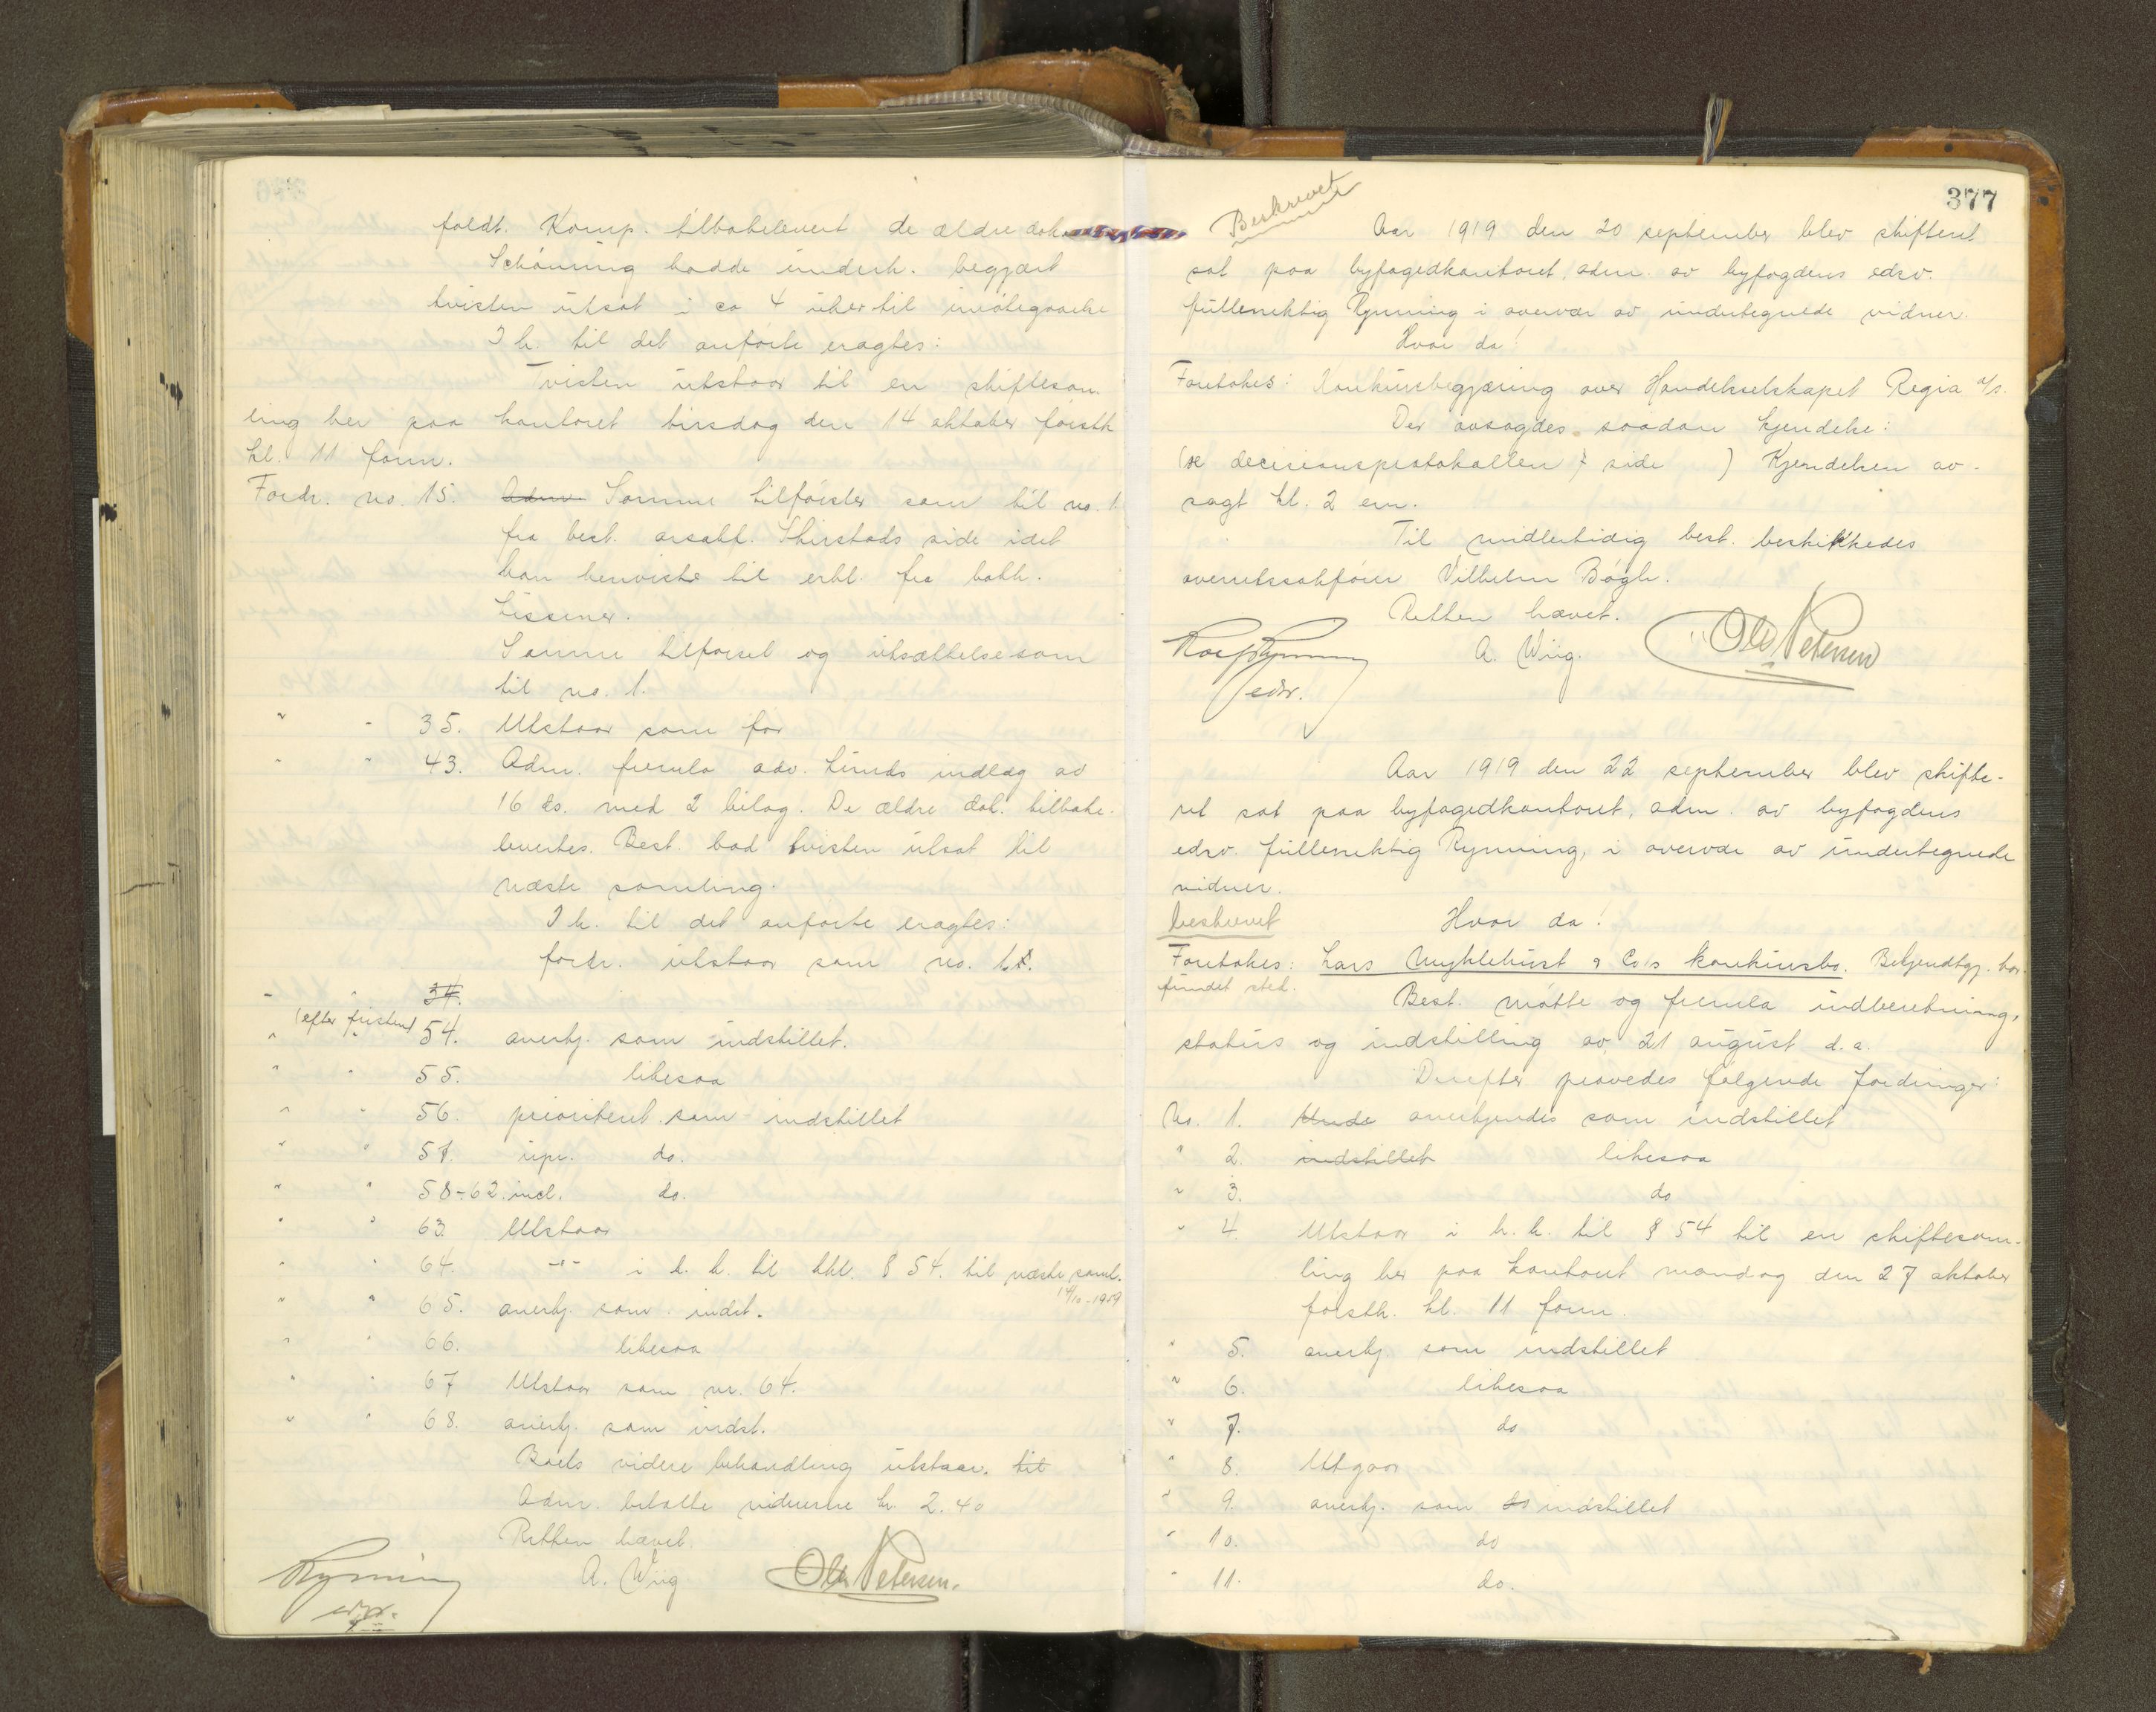 foldt. Komp. tilbakelevert de ældre dok
Schøning hadde underh. begjært
tvisten utsat i ca 4 uker til imøtegaaelse
I h. til det anførte eragtes:
Tvisten utstaar til en skiftesam
ling her paa kontoret tirsdag den 14 oktober førstk
kl. 11 form.
Fordr. no. 15. Adm. Samme tilførsler som til no. 1.
fra best. orsakf. Skirstads side idet
han henviste til erkl. fra bokh.
Lissner.
Samme tilførsel og utsættelse som
til no. 1.
" " 35. Utstaar som før
" " 43. Adm. freml. adv. Lunds indlæg av
16 ds. med 2 bilag. De ældre dok. tilbake-
levertes. Best. bad tvisten utsat til
næste samling.
I h. til det anførte eragtes:
fordr. utstaar som no. 1.
" " 34.
(efter fristen)
" " 54. anerkj. som indstillet.
" " 55. likesaa
" " 56. prioritert som indstillet
" " 57. upr. do.
" " 58-62 incl. do.
" " 63. Utstaar
" " 64. -"- i h. h. til kkl. § 54. til næste saml.
14/10-1919
" " 65. anerkj. som indst.
" " 66. likesaa
" " 67 Utstaar som nr. 64.
" " 68. anerkj. som indst.
Boets videre behandling utstaar. til
Adm. betalte vidnerne kr. 2.40
Retten hævet.
Rynning A. Wiig Ole Petersen.
edsv.
377
Beskrevet
Aar 1919 den 20 september blev skifteret
sat paa byfogedkontoret, adm. av byfogdens edsv.
fuldmektig Rynning i overvær av undertegnede vidner.
Hvor da!
Foretokes: Konkursbegjæring over Handelselskapet Regia a/s.
Der avsagdes saadan kjendelse:
(se decisionsprotokollen 7 side ) Kjendelsen av-
sagt kl. 2 em.
Til midlertidig best. beskikkedes
overretssakfører Vilhelm Bøgh.
Retten hævet.
Rynning A. Wiig. Ole Petersen
edsv.
Aar 1919 den 22 september blev skifte-
ret sat paa byfogedkontoret, adm. av byfogdens
edsv. fuldmektig Rynning, i overvær av undertegnede
vidner.
beskrevet Hvor da!
Foretokes: Lars Myklebust & Co's konkursbo. Bekjendtgj. har
fundet sted.
Best. møtte og freml. indberetning,
status og indstilling av 21 august d.a.
Derefter prøvedes følgende fordringer:
No. 1. anerkjendes som indstillet
" 2. indstillet likesaa
" 3. do
" 4. Utstaar i h. h. til § 54 til en skiftesam-
ling her paa kontoret mandag den 27 oktober
førstk. kl. 11 form.
" 5. anerkj. som indstillet
" 6. likesaa
" 7. do
" 8. Utgaar
" 9. anerkj. som do indstillet
" 10. do
" 11. do.